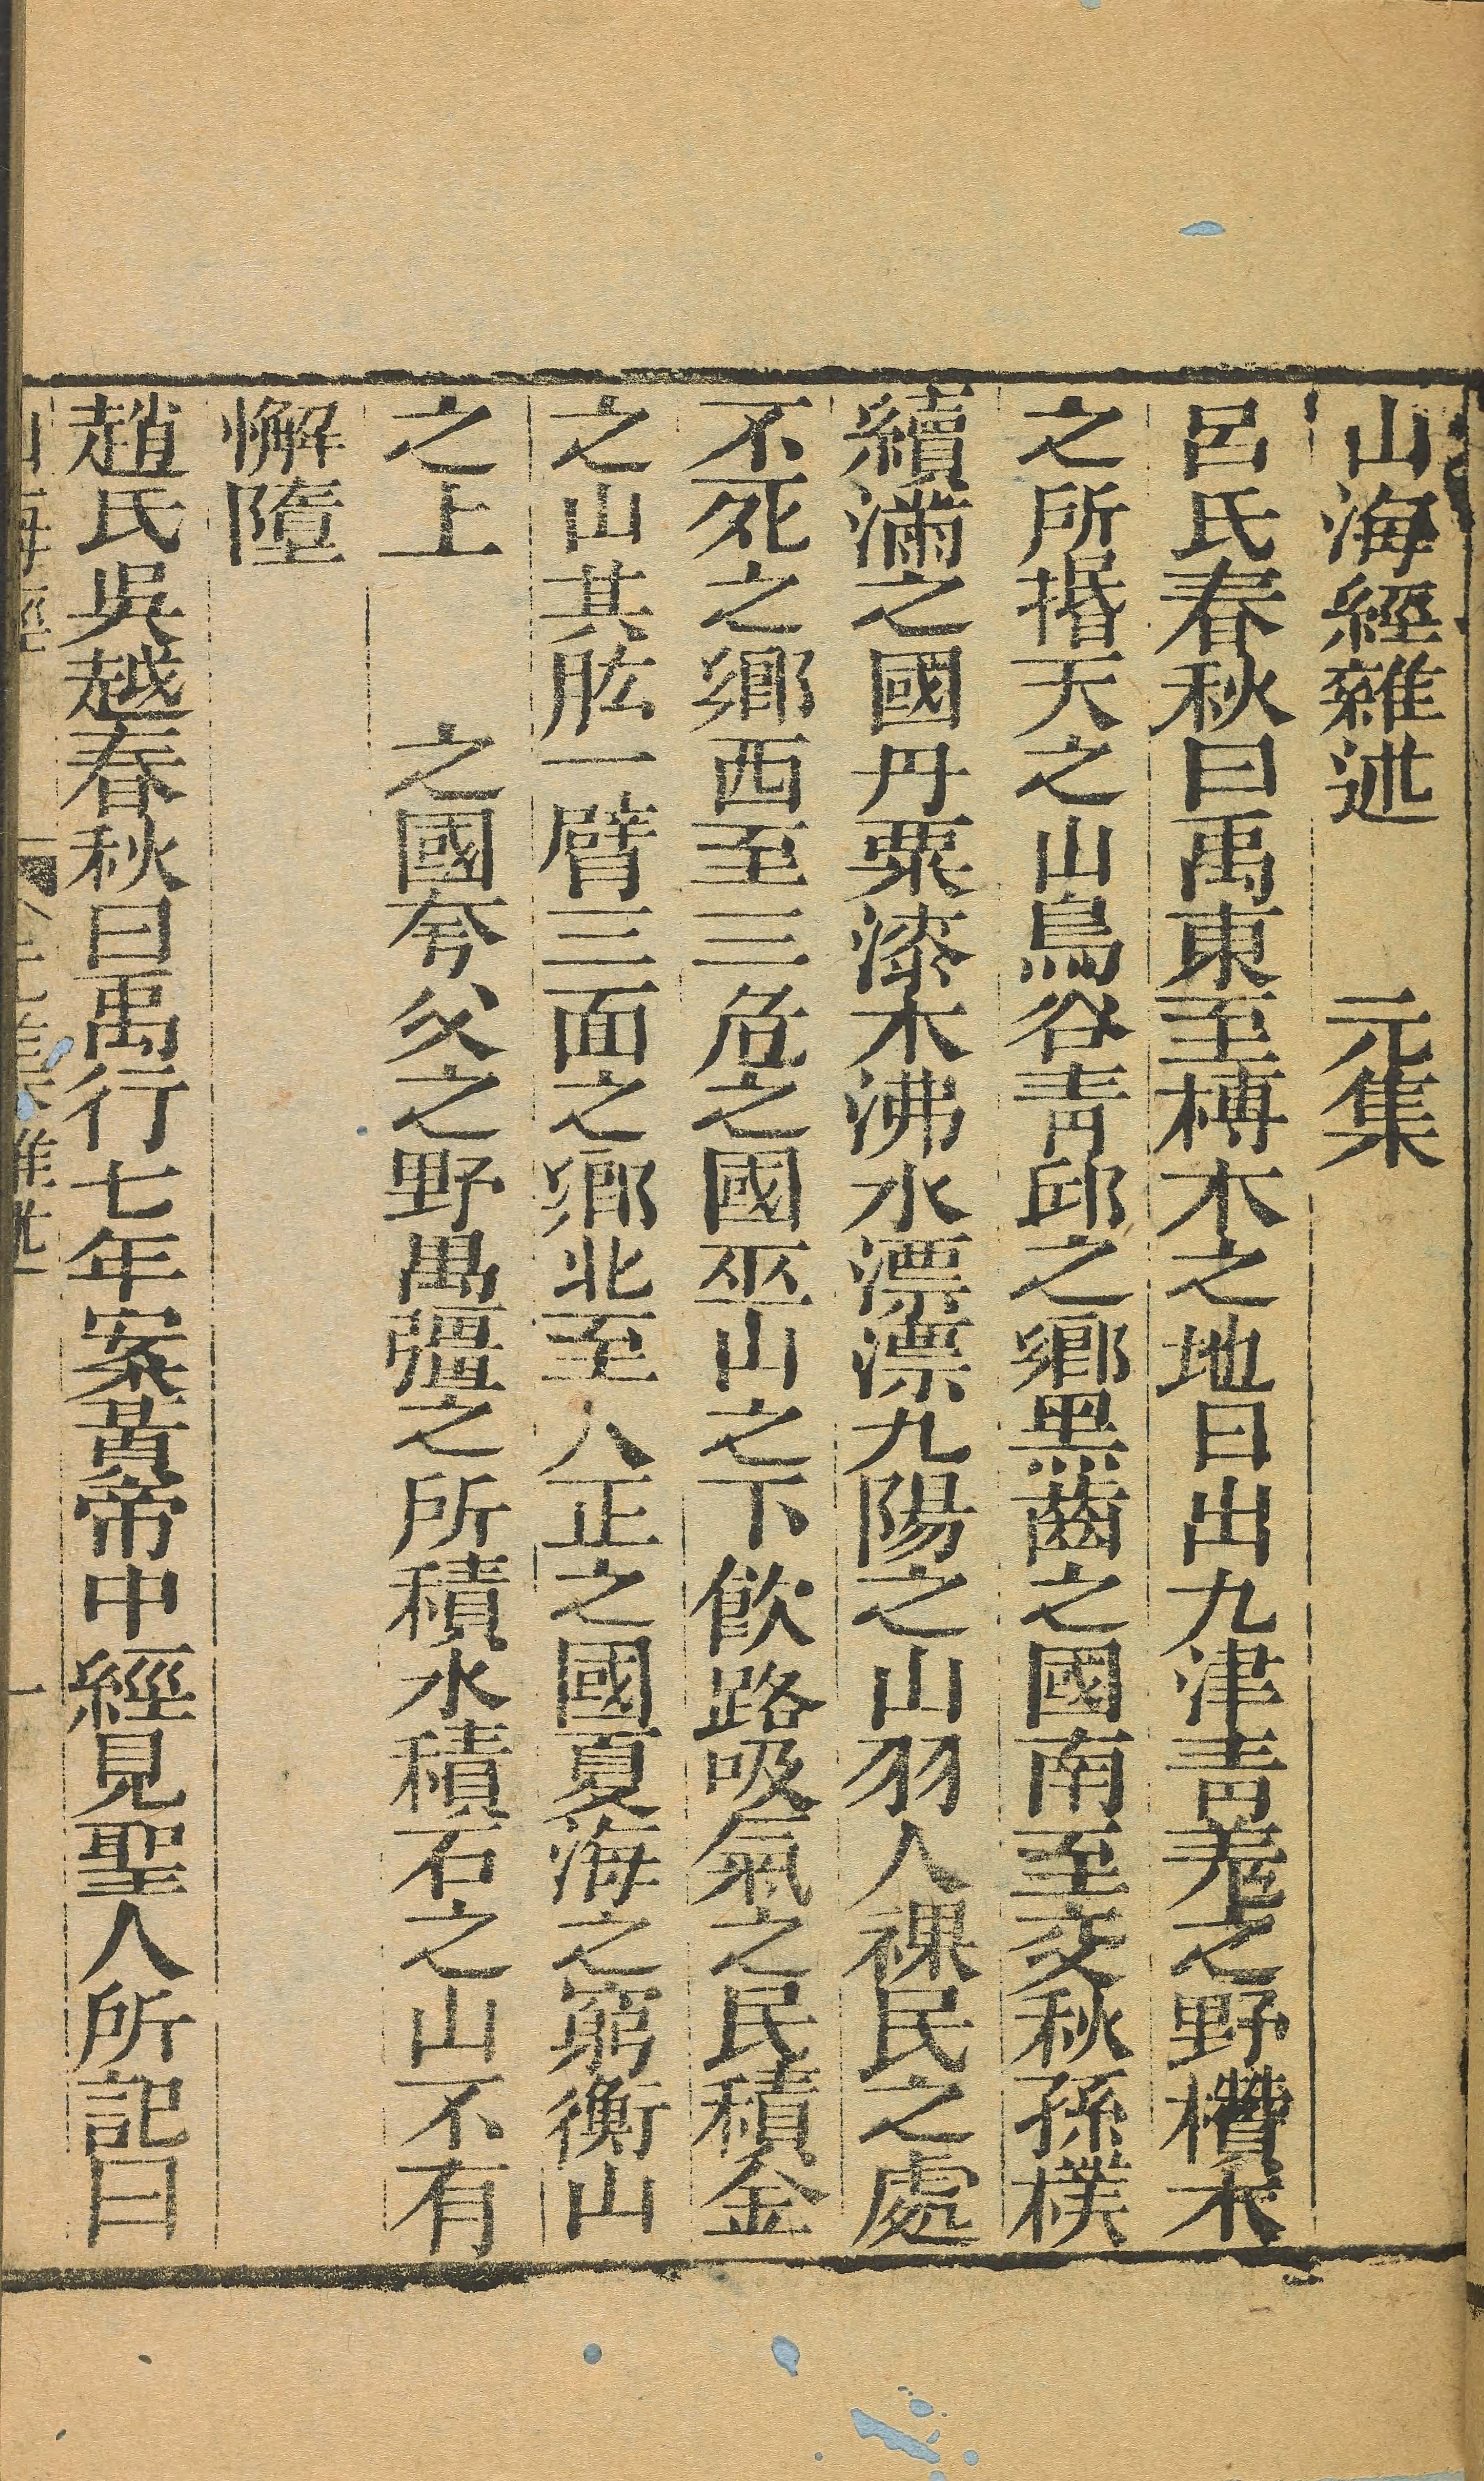 山海經雜述　　元集
呂氏春秋曰禹東至榑木之地日出九津靑羌之野欑木
之所捪天之山鳥谷靑邱之鄉黑齒之國南至交秋孫樸
續滿之國丹粟漆木沸水漂漂九陽之山羽人裸民之處
不死之鄉西至三危之國巫山之下飮路吸氣之民積金
之山其肱一臂三面之鄉北至人正之國夏海之窮衡山
之上　　之國夸父之野禺彊之所積水積石之山不有
懈墮
趙氏吳越春秋曰禹行七年案黃帝中經見聖人所記曰
山海經　雜述　一